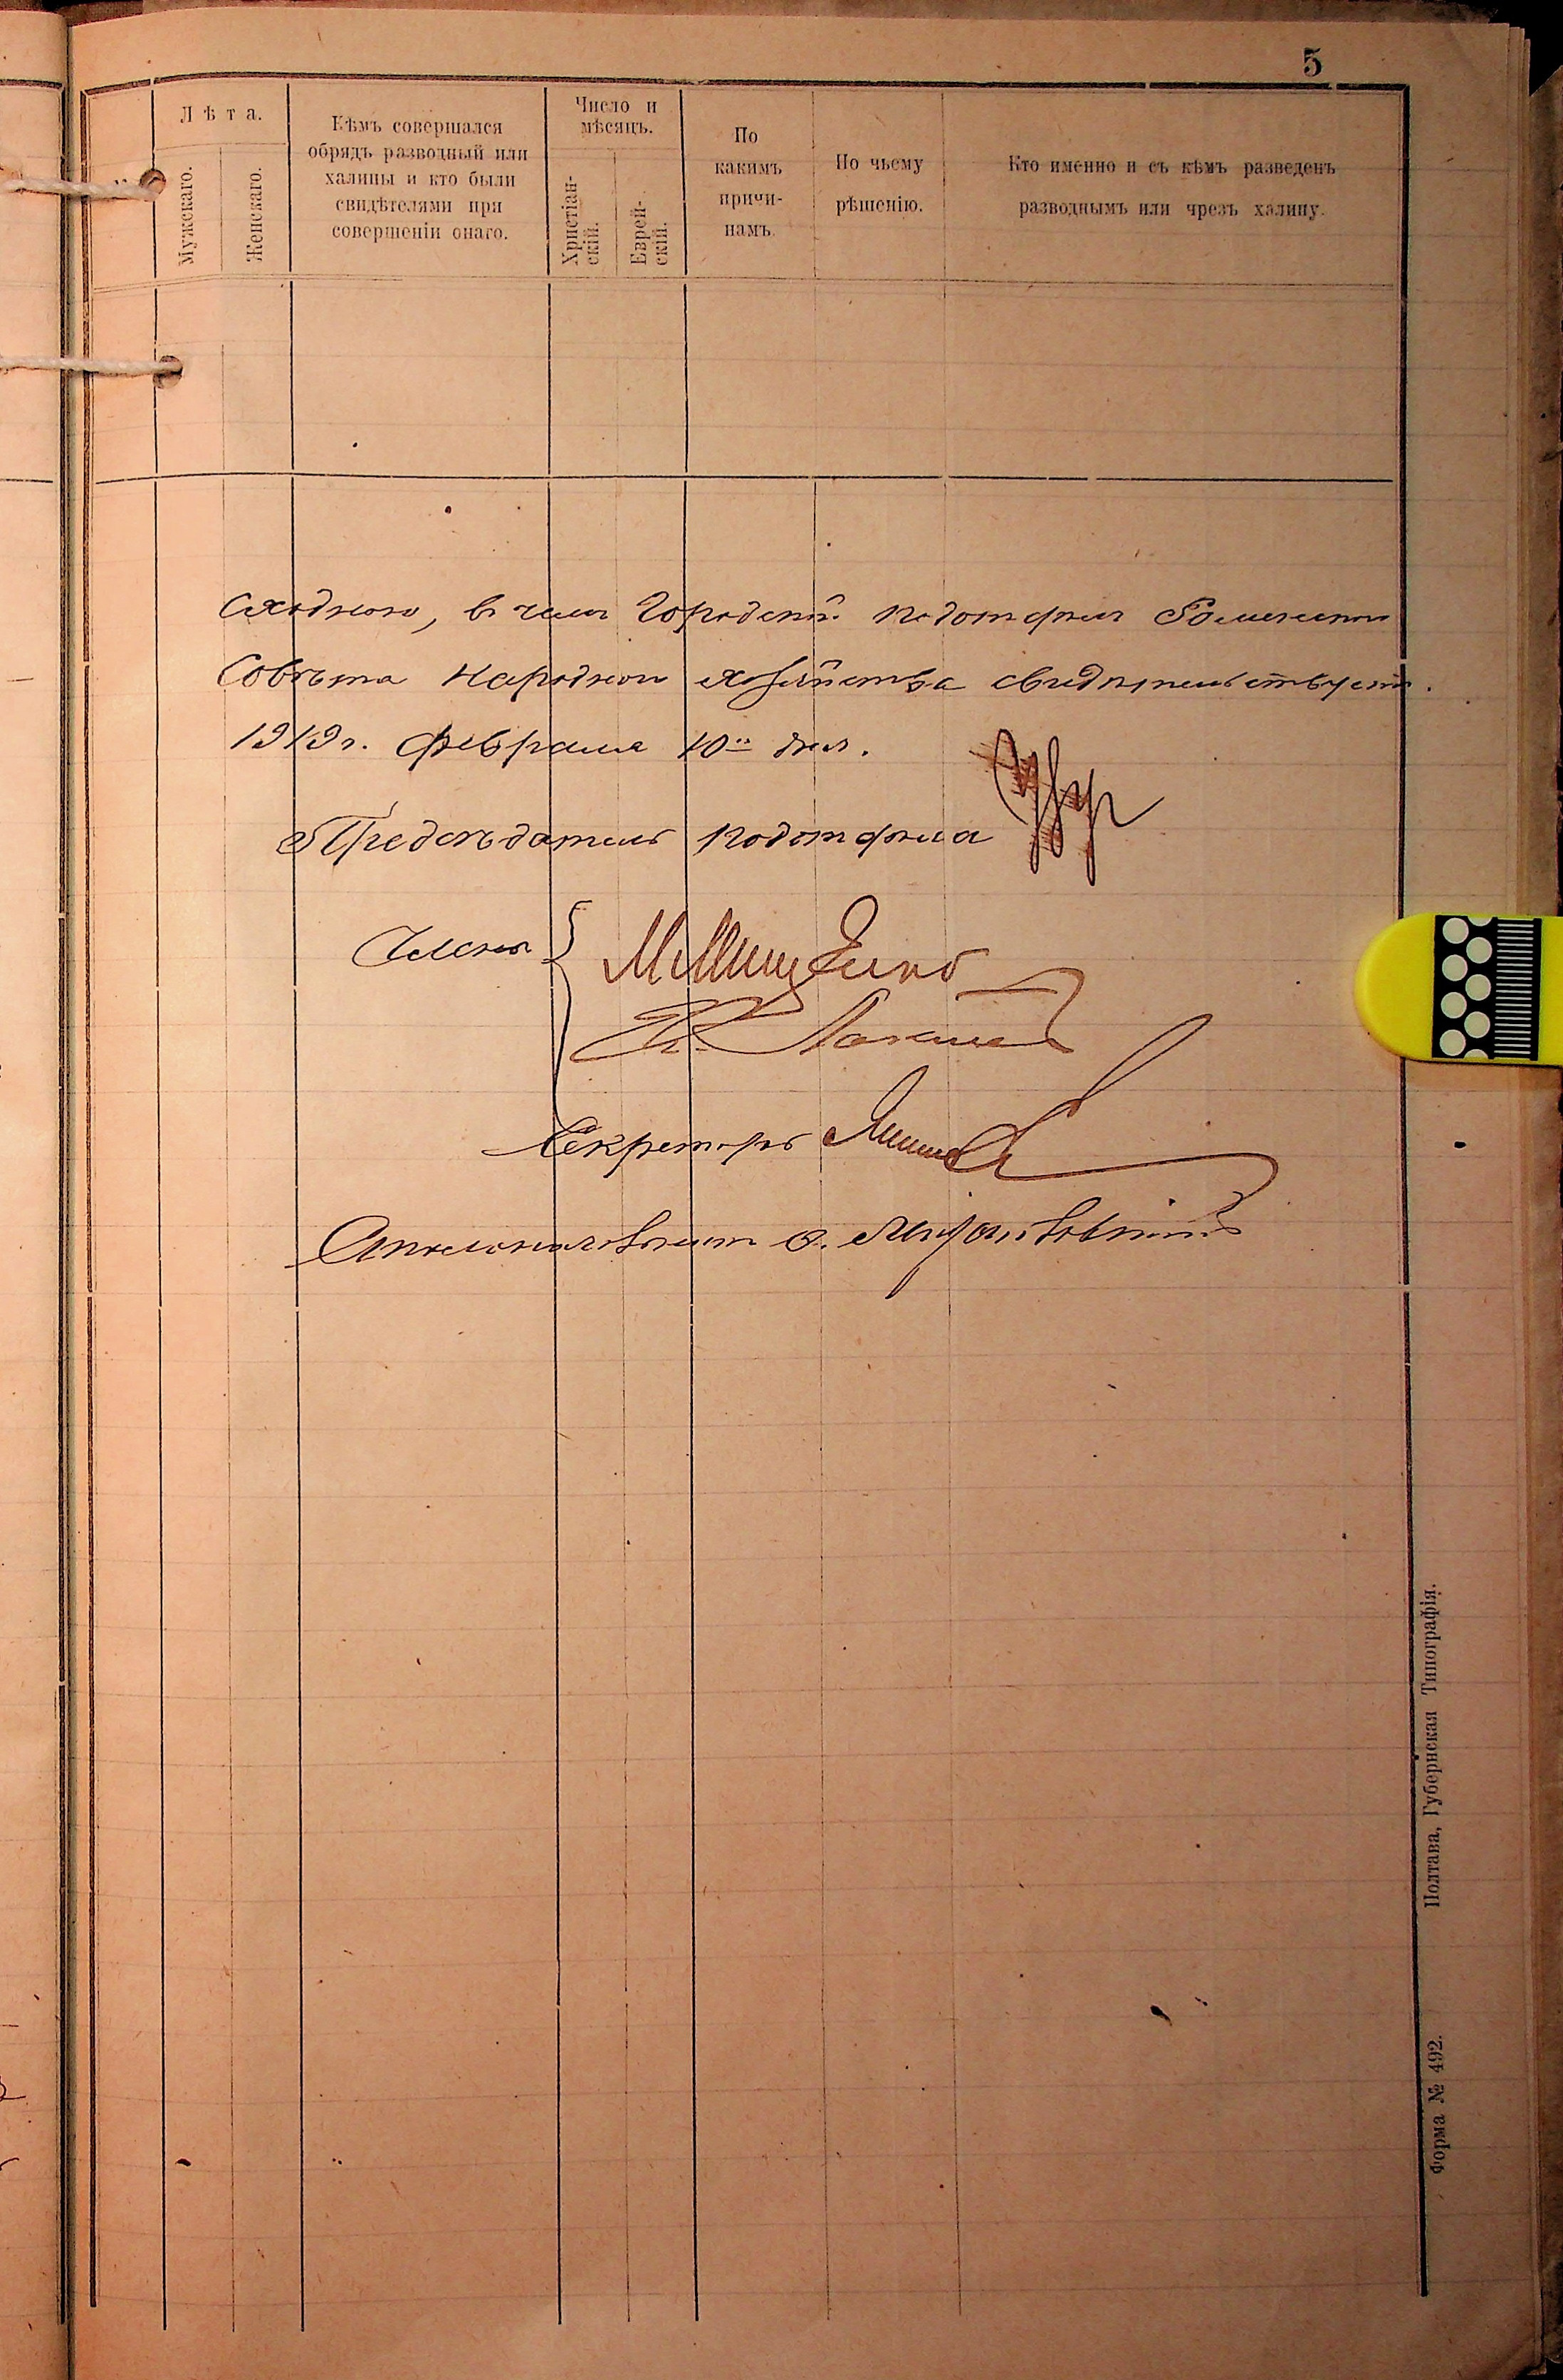 5
Лѣта.
Мужскаго.
Женскаго.
Кѣмъ совершался
обрядъ разводный или
халицы и кто были
свидѣтелями при
совершеніи онаго.
Число и
мѣсяцъ.
Христіан-
скій.
Еврей-
скій.
По
какимъ
причи-
намъ.
По чьему
рѣшенію.
Кто именно и съ кѣмъ разведенъ
разводнымъ или чрезъ халицу.
сходною, въ чемъ Городской подотдѣлъ Роменскаго
Совѣта Народнаго хозяйства свидѣтельствуетъ.
1919 г. февраля 10 дня.
Предсѣдатель подотдѣла
Члены
Секретарь
Полтава, Губернская Типографія.
Форма № 492.